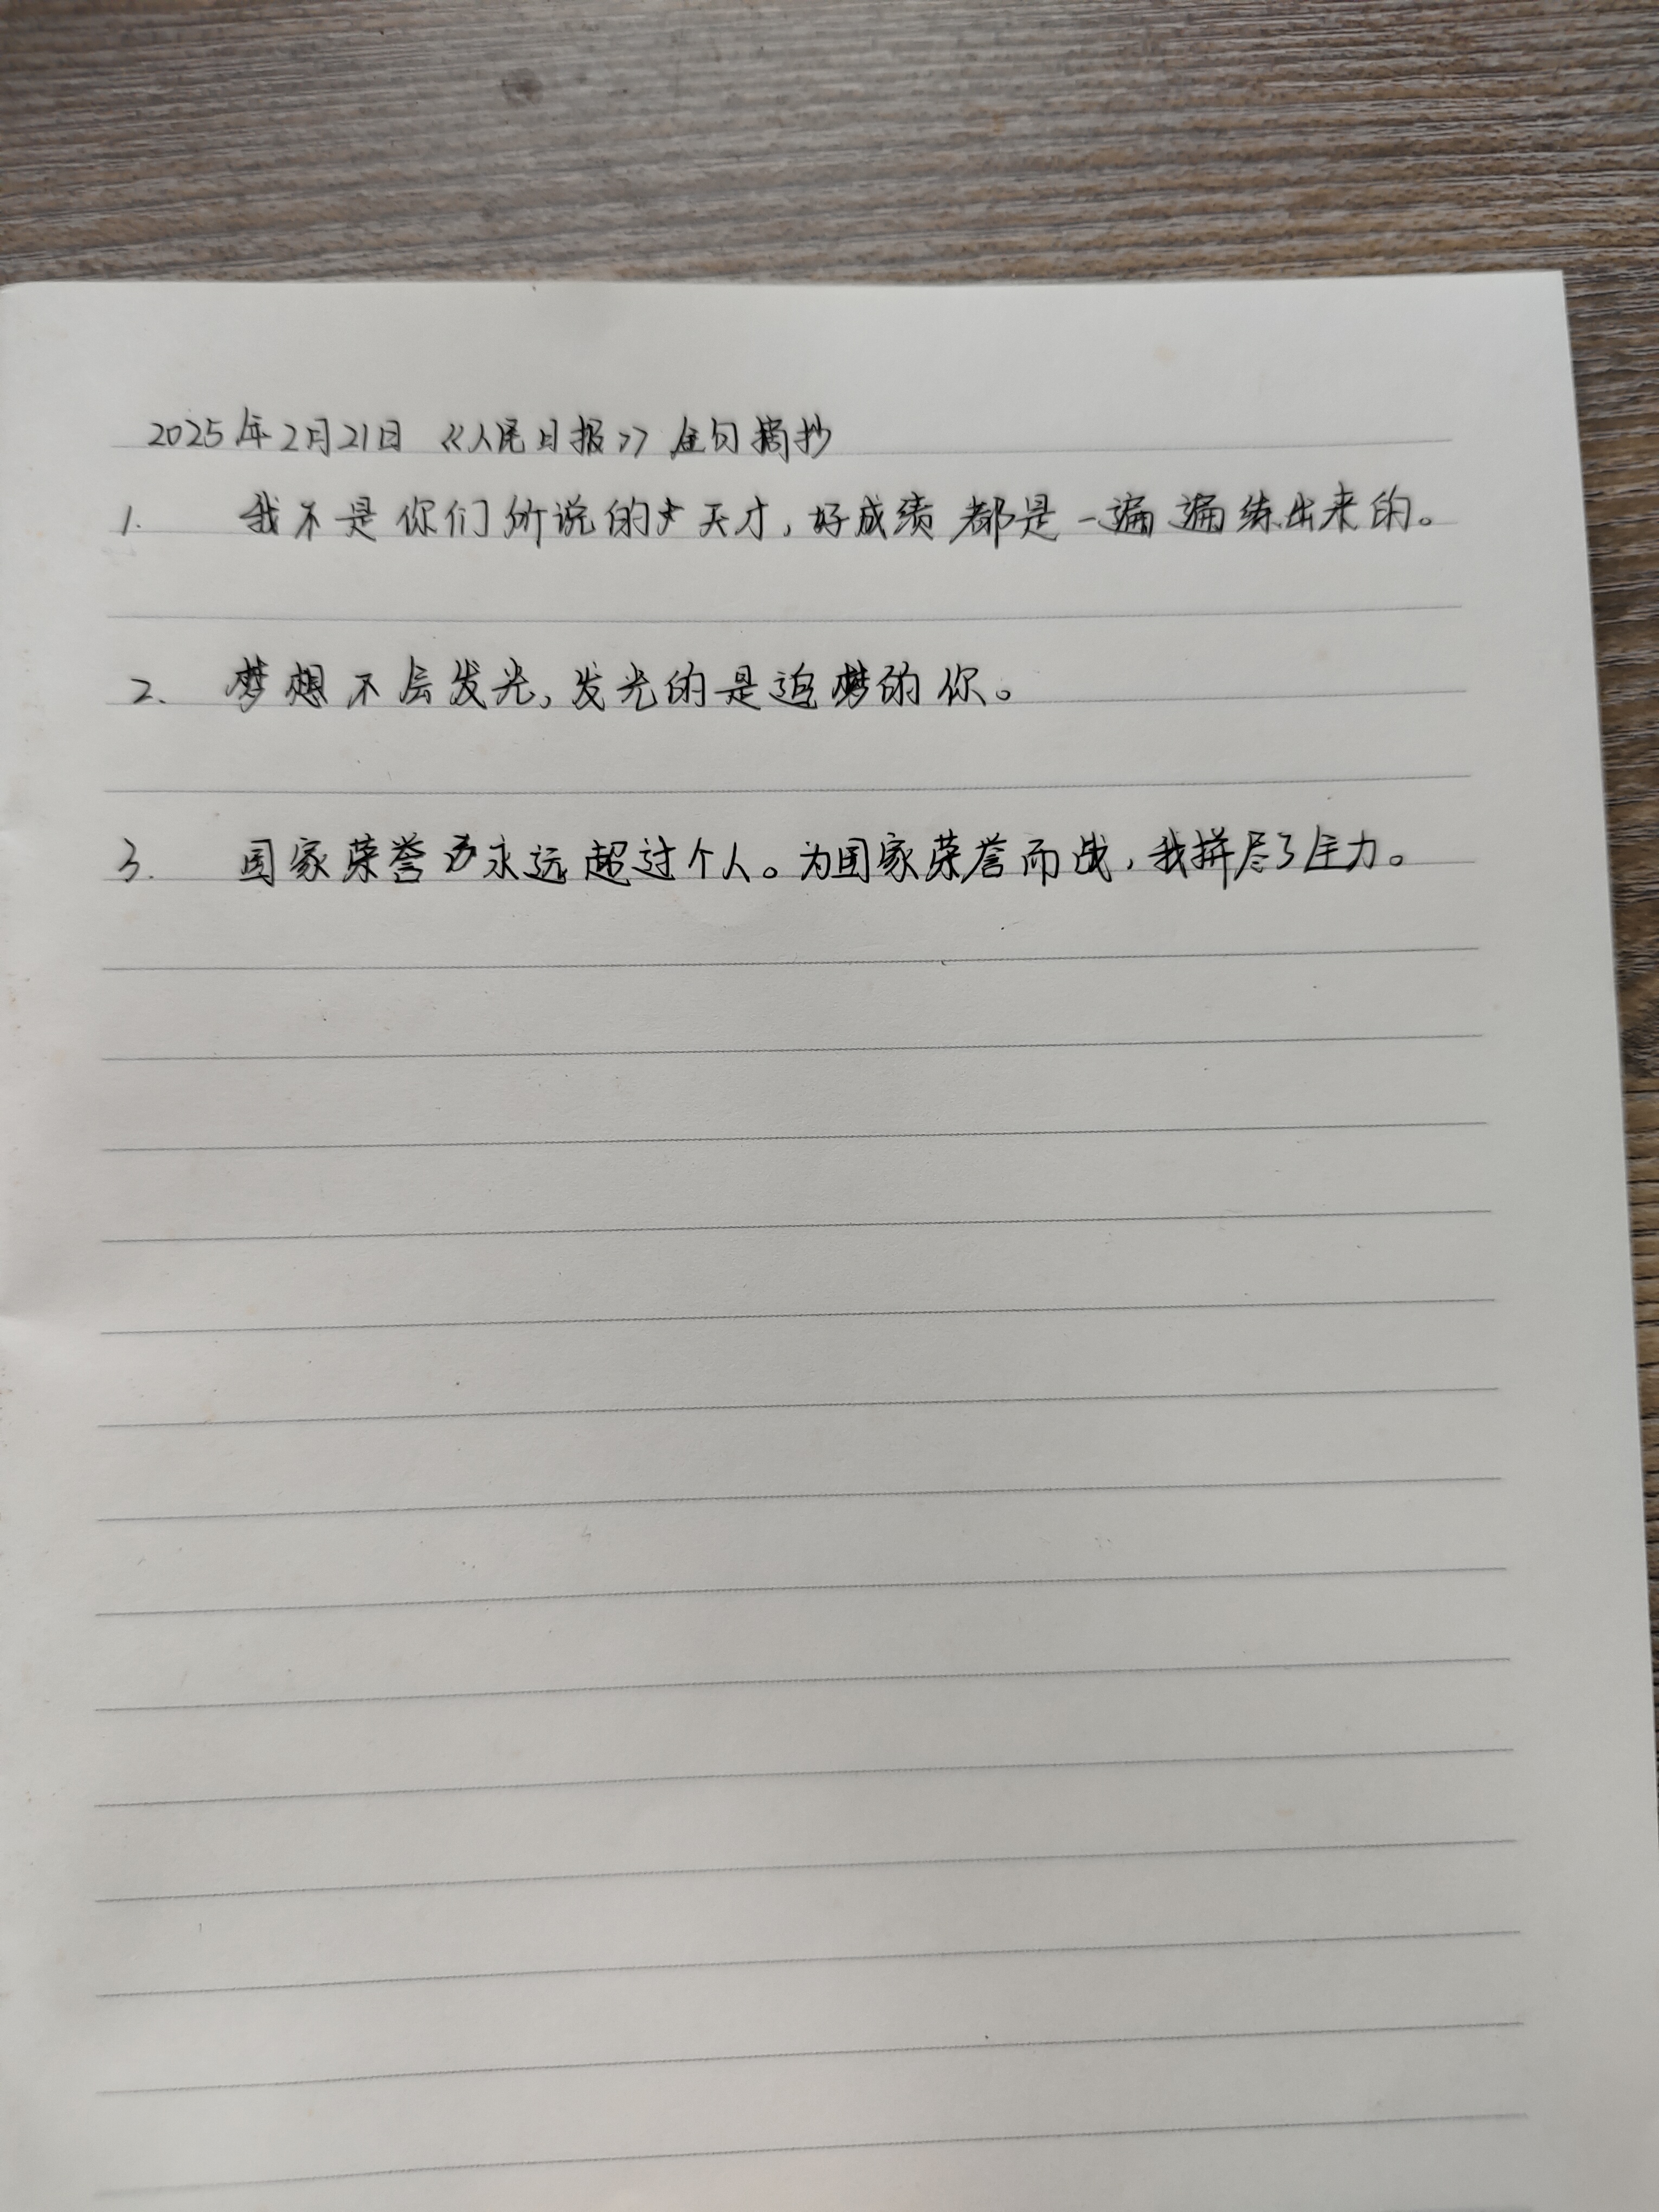 2025年2月21日 《人民日报》金句摘抄
1. 我不是你们所说的天才，好成绩都是一遍遍练出来的。
2. 梦想不会发光，发光的是追梦的你。
3. 国家荣誉永远超过个人。为国家荣誉而战，我拼尽了全力。